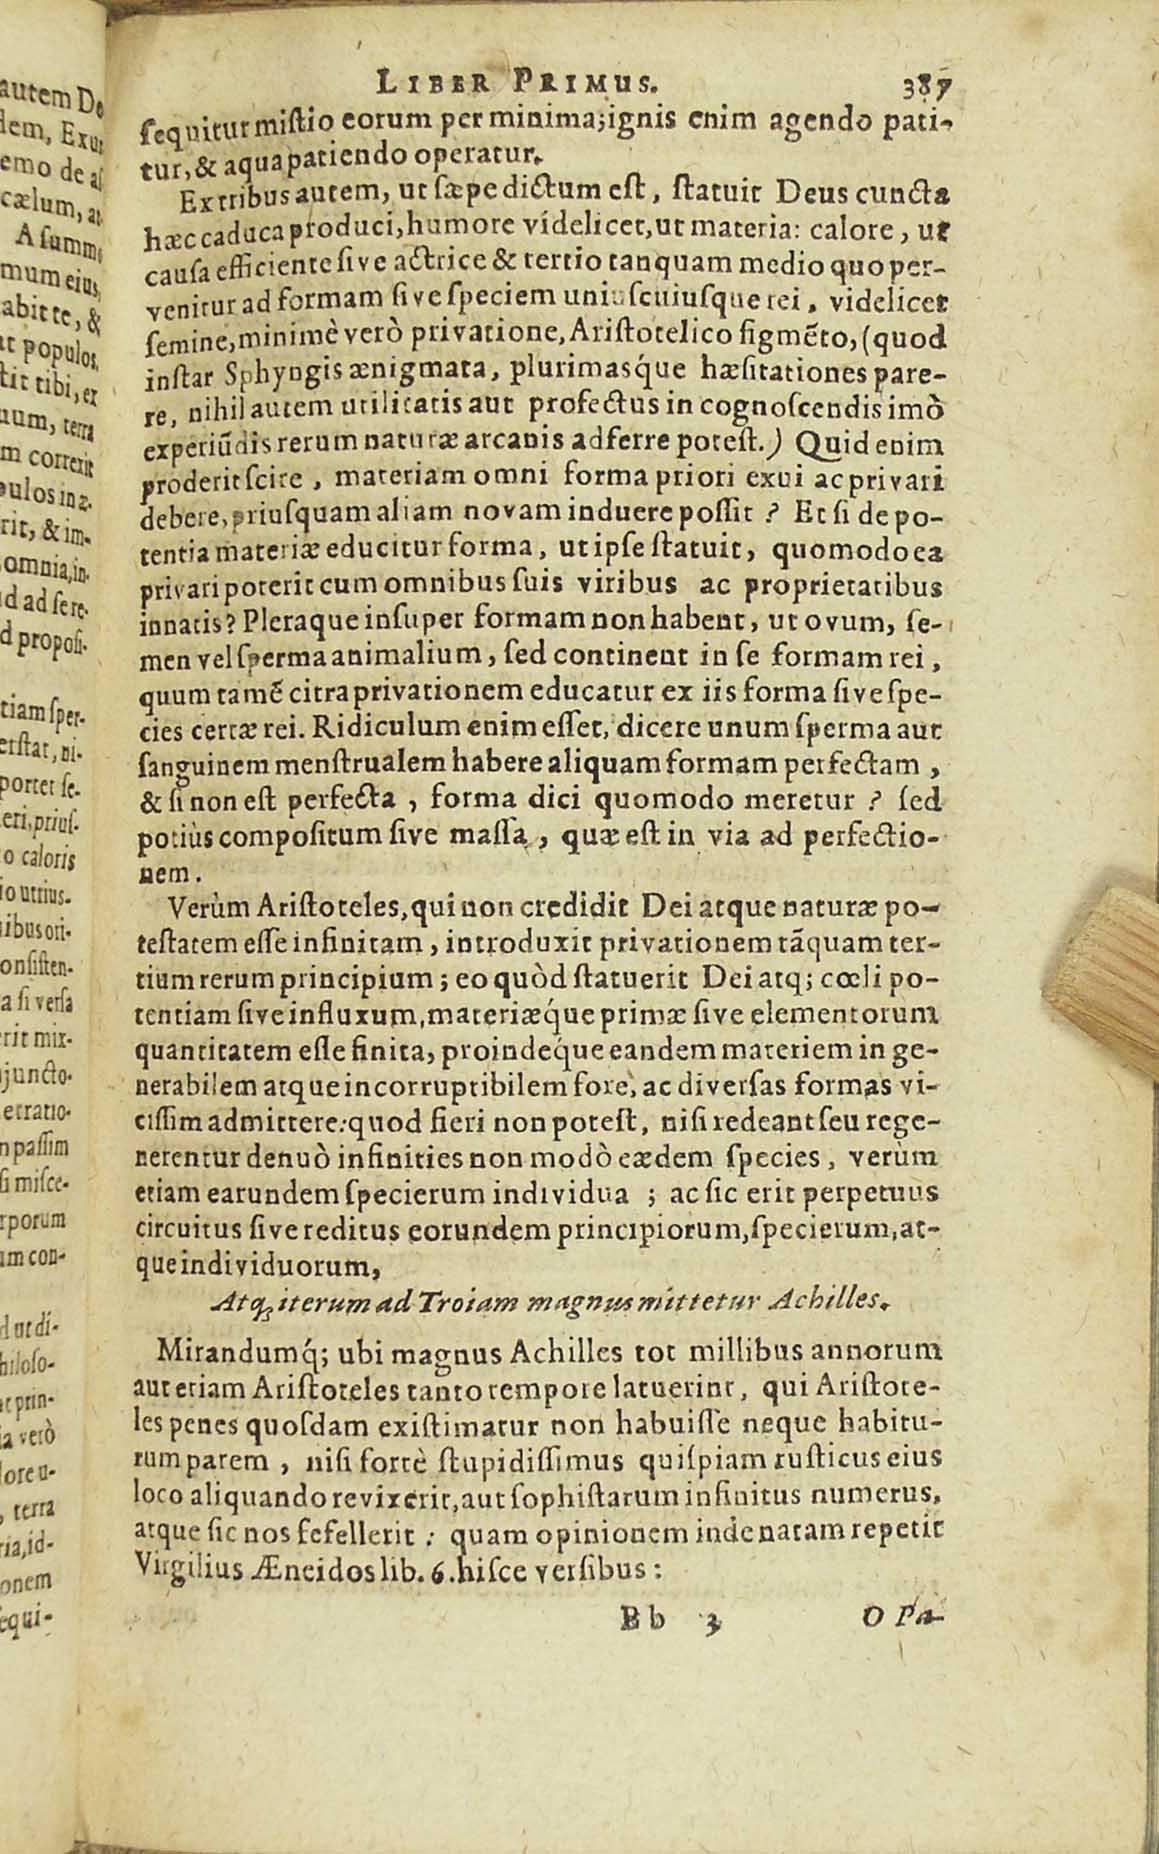 LIBER PRIMUS. 387
sequitur mistio eorum per minima; ignis enim agendo pati-
tur, & aqua patiendo operatur.
Ex tribus autem, ut sæpe dictum est, statuit Deus cuncta
hæc caduca produci, humore videlicet, ut materia: calore, ut
causa efficiente sive actrice & tertio tanquam medio quo per-
venitur ad formam sive speciem uniuscuiusque rei, videlicet
semine, minimè verò privatione, Aristotelico figmẽto, (quod
instar Sphyngis ænigmata, plurimasq́ue hæsitationes pare-
re, nihil autem utilitatis aut profectus in cognoscendis imò
experiũdis rerum naturæ arcanis adferre potest.) Quid enim
proderit scire, materiam omni forma priori exui ac privari
debere, priusquam aliam novam induere possit? Et si de po-
tentia materiæ educitur forma, ut ipse statuit, quomodo ea
privari poterit cum omnibus suis viribus ac proprietatibus
innatis? Pleraque insuper formam non habent, ut ovum, se-
men vel sperma animalium, sed continent in se formam rei,
quum tamẽ citra privationem educatur ex iis forma sive spe-
cies certæ rei. Ridiculum enim esset, dicere unum sperma aut
sanguinem menstrualem habere aliquam formam perfectam,
& si non est perfecta, forma dici quomodo meretur? sed
potiùs compositum sive massa, quæ est in via ad perfectio-
nem.
Verùm Aristoteles, qui non credidit Dei atque naturæ po-
testatem esse infinitam, introduxit privationem tãquam ter-
tium rerum principium; eo quòd statuerit Dei atq; cœli po-
tentiam sive influxum, materiæq́ue primæ sive elementorum
quantitatem esse finita, proindeq́ue eandem materiem inge-
nerabilem atque incorruptibilem fore, ac diversas formas vi-
cissim admittere: quod fieri non potest, nisi redeant seu rege-
nerentur denuò infinities non modò eædem species, verùm
etiam earundem specierum individua; ac sic erit perpetuus
circuitus sive reditus eorundem principiorum, specierum, at-
que individuorum,
Atq; iterum ad Troiam magnus mittetur Achilles.
Mirandumq́; ubi magnus Achilles tot millibus annorum
aut etiam Aristoteles tanto tempore latuerint, qui Aristote-
les penes quosdam existimatur non habuisse neque habitu-
rum parem, nisi fortè stupidissimus quispiam rusticus eius
loco aliquando revixerit, aut sophistarum infinitus numerus,
atque sic nos fefellerit: quam opinionem inde natam repetit
Virgilius Æneidos lib. 6. hisce versibus:
Bb 3 O Pa-